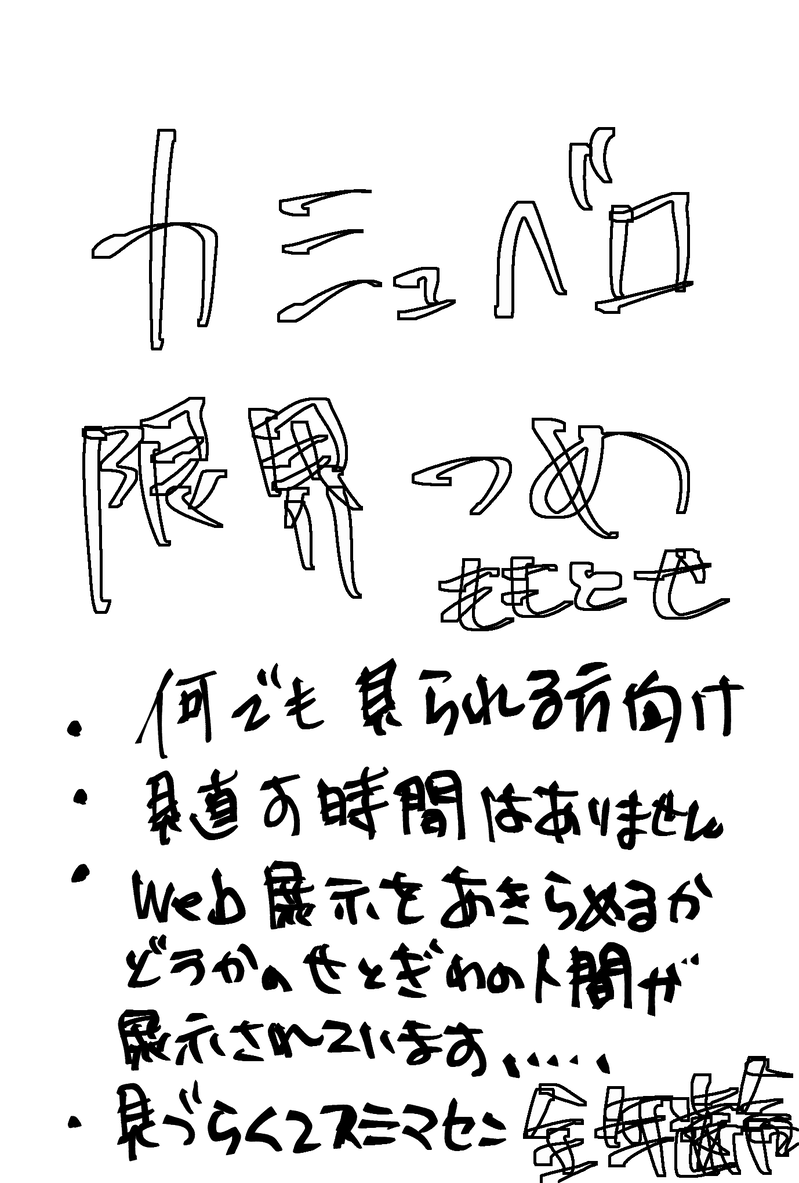 カミュベロ
限界つめ
ももとせ
・何でも見られる方向け
・見直す時間はありません
・Web展示をあきらめるか
どうかのせとぎわの人間が
展示されています.....
・見づらくてスミマセン